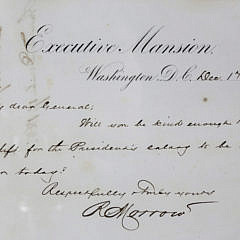 Executive Mansion,
Washington, D.C. Dec 1
y dear General:
Will you be kind enough
for the President's salary to be
today?
Respectfully & truly yours
R Morrow